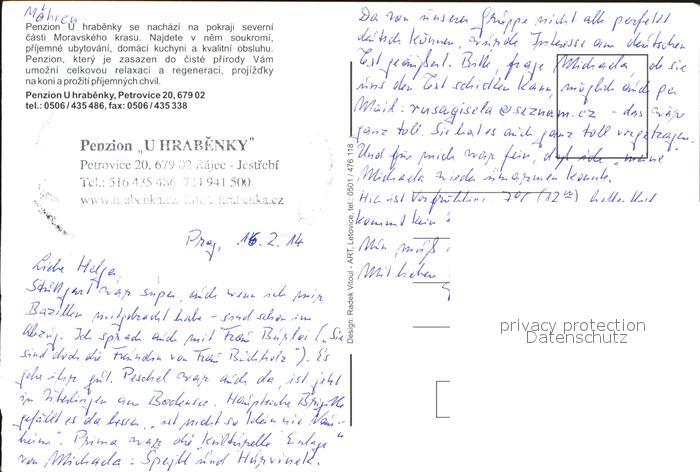 Mähren
Penzion U hraběnky se nachází na pokraji severní
části Moravského krasu. Najdete v něm soukromí,
příjemné ubytování, domácí kuchyni a kvalitní obsluhu.
Penzion, který je zasazen do čisté přírody Vám
umožní celkovou relaxaci a regeneraci, projížďky
na koni a prožití příjemných chvil.
Penzion U hraběnky, Petrovice 20, 679 02
tel.: 0506 / 435 486, fax: 0506 / 435 338
Penzion „U HRABĚNKY"
Petrovice 20, 679 02 Rájec - Jestřebí
Tel.: 516 435 486 724 941 500
www.hrabenka.cz
Prag, 16.2.14
Liebe Helga,
Stuttgart war super, auch wenn ich mir
Bazillen mitgebracht habe - sind schon im
Abzug. Ich sprach auch mit Frau ("Sie
sind doch die Freundin von Frau Buchholz"). Es
gehe ihr gut. Peschel war auch da, ist jetzt
in am Bodensee. Hauptsache
gefällt es da besser, "ist nicht so
heim". Prima war die "kulturelle Einlage"
von Michaela: Spejbl und Hurvinek.
Design: Radek Vítoul - ART, Letovice, tel.: 0501 / 476 118
Da von unserer Gruppe nicht alle perfekt
deutsch können, wurde Interesse am deutschen
Text geäußert. Bitte, frage Michaela, ob sie
uns den Text schicken kann, möglich auch per
Mail: rusagisela@seznam.cz - das wäre
ganz toll. Sie hat es auch ganz toll vorgetragen.
Und für mich war fein, daß ich "meine"
Michaela wieder umarmen konnte.
Hier ist Vorfrühling: 7°C (12°°)
kommt kein
privacy protection
Datenschutz